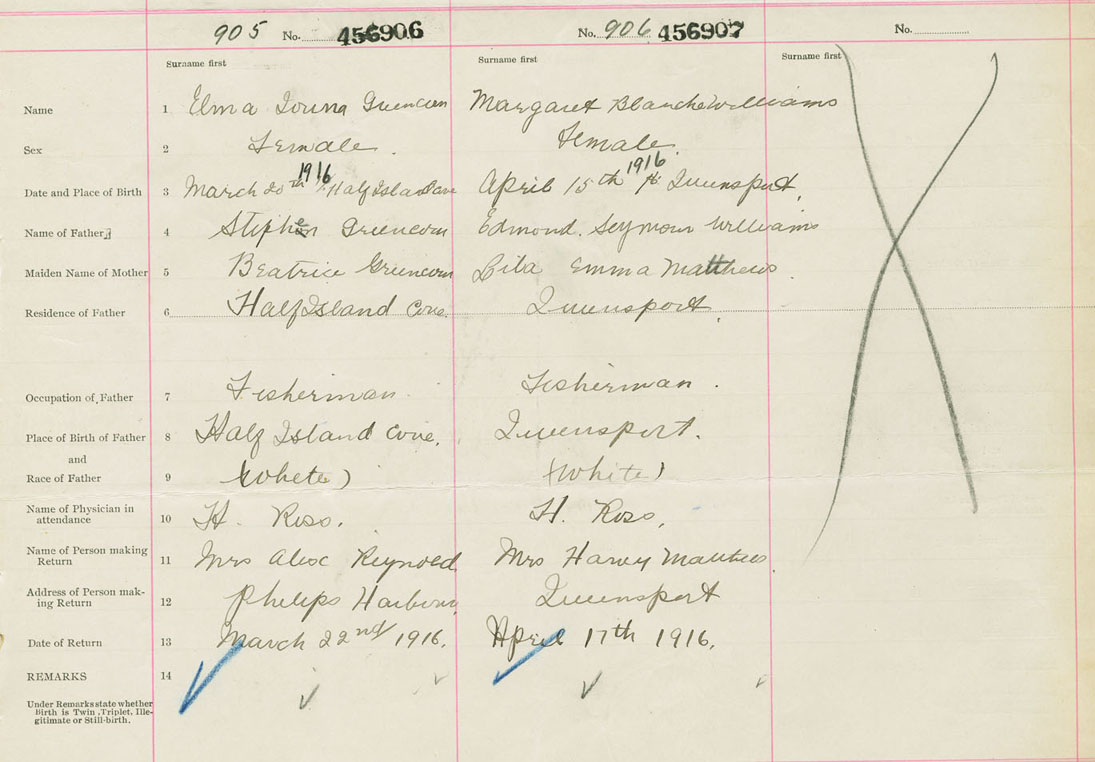 905 No. 456906
No. 906 456907
No.
Surname first
Surname first
Surname first
Name 1 Elma Greencorn Margaret Blanche Williams
Sex 2 Female. Female.
1916 1916
Date and Place of Birth 3 March 20th Half Island Cove April 15th Queensport,
Name of Father 4 Stephen Greencorn Edmond. Seymour Williams
Maiden Name of Mother 5 Beatrice Greencorn Emma Matthews
Residence of Father 6 Half Island Cove. Queensport.
Occupation of Father 7 Fisherman. Fisherman.
Place of Birth of Father 8 Half Island Cove. Queensport.
and
Race of Father 9 (White) (White)
Name of Physician in
attendance 10 H. Ross. H. Ross.
Name of Person making
Return 11 Mrs Alex Reynold Mrs Harvey Matthews
Address of Person mak-
ing Return 12 Phelips Harbour, Queensport
Date of Return 13 March 22nd 1916. April 17th 1916.
REMARKS 14
Under Remarks state whether
Birth is Twin, Triplet, Ille-
gitimate or Still-birth.